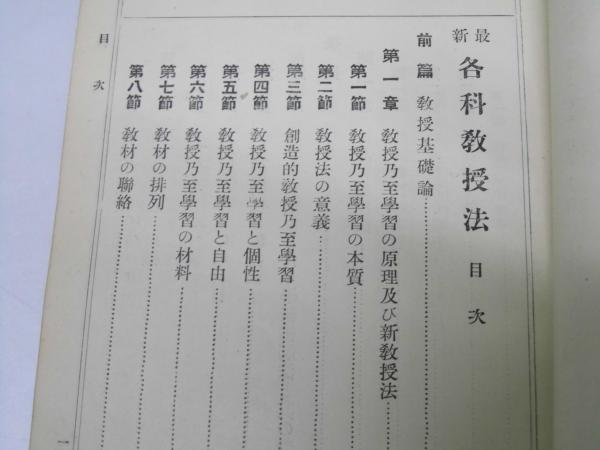 最新 各科敎授法 目次
前篇 敎授基礎論
第一章 敎授乃至學習の原理及び新敎授法
第一節 敎授乃至學習の本質
第二節 敎授法の意義
第三節 創造的敎授乃至學習
第四節 敎授乃至學習と個性
第五節 敎授乃至學習と自由
第六節 敎授乃至學習の材料
第七節 敎材の排列
第八節 敎材の聯絡
目次
一